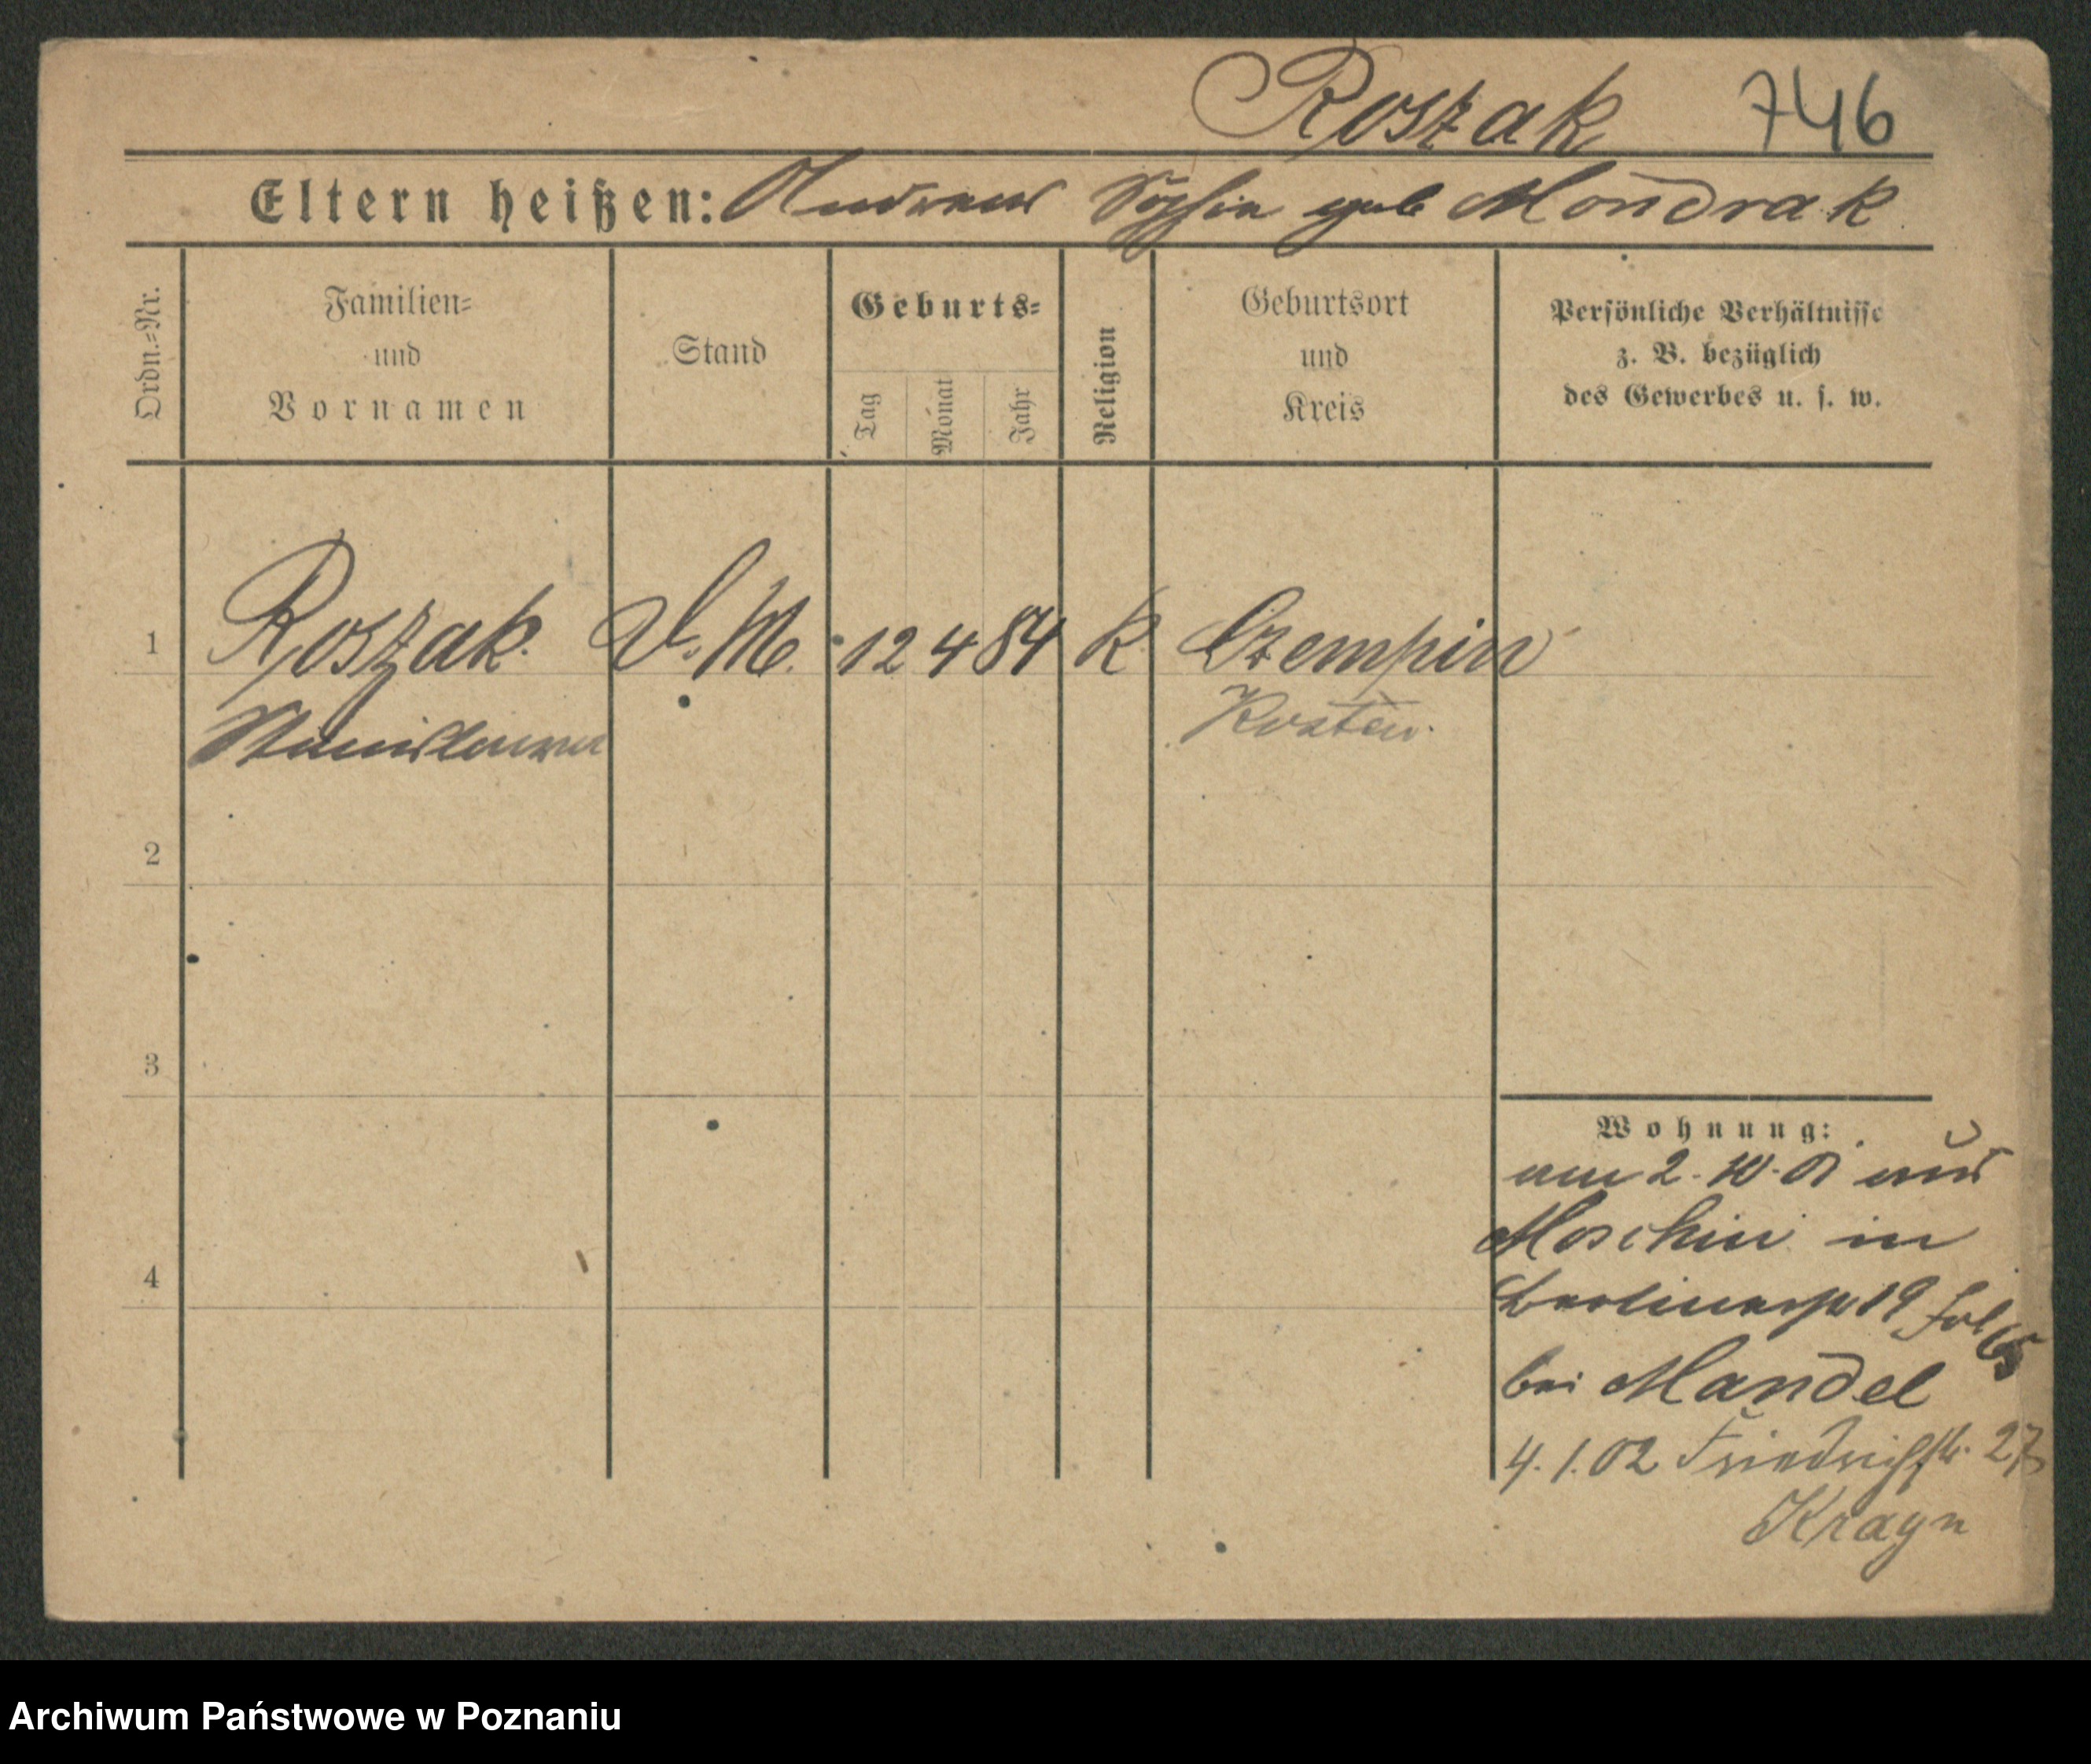 Roszak 746
Eltern heißen: Andreas Sophia geb Mondrak
Ordn.=Nr.
Familien=
und
Vornamen
Stand
Geburts=
Tag
Monat
Jahr
Religion
Geburtsort
und
Kreis
Persönliche Verhältnisse
z. B. bezüglich
des Gewerbes u. s. w.
1 Roszak D. M. 12 4 84 K Czempin
Stanislawa Kosten.
2
3
4
Wohnung:
am 2. 10. 01 aus
Moschin in
Berlinerstr 19
bei Mandel
4. 1. 02 Friedrichstr. 27
Krayn
Archiwum Państwowe w Poznaniu